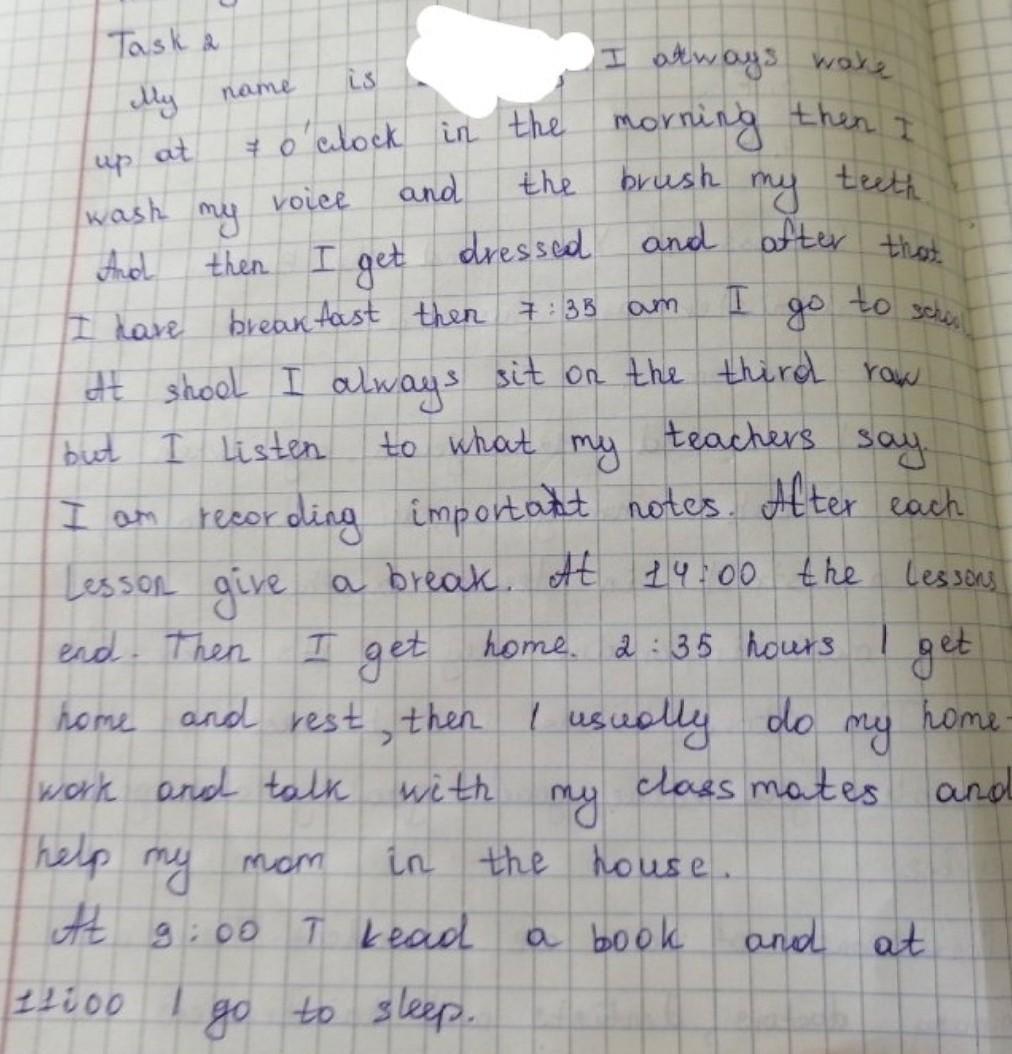 Task 2
My name is I always wake
up at 7 o'clock in the morning then I
wash my voice and the brush my teeth
And then I get dressed and after that
I have breakfast then 7:35 am I go to school
At shool I always sit on the third raw
but I listen to what my teachers say.
I am recording important notes. After each
lesson give a break. At 14:00 the lessons
end. Then I get home. 2:35 hours I get
home and rest, then I usually do my home-
work and talk with my classmates and
help my mom in the house.
At 9:00 I read a book and at
11:00 I go to sleep.